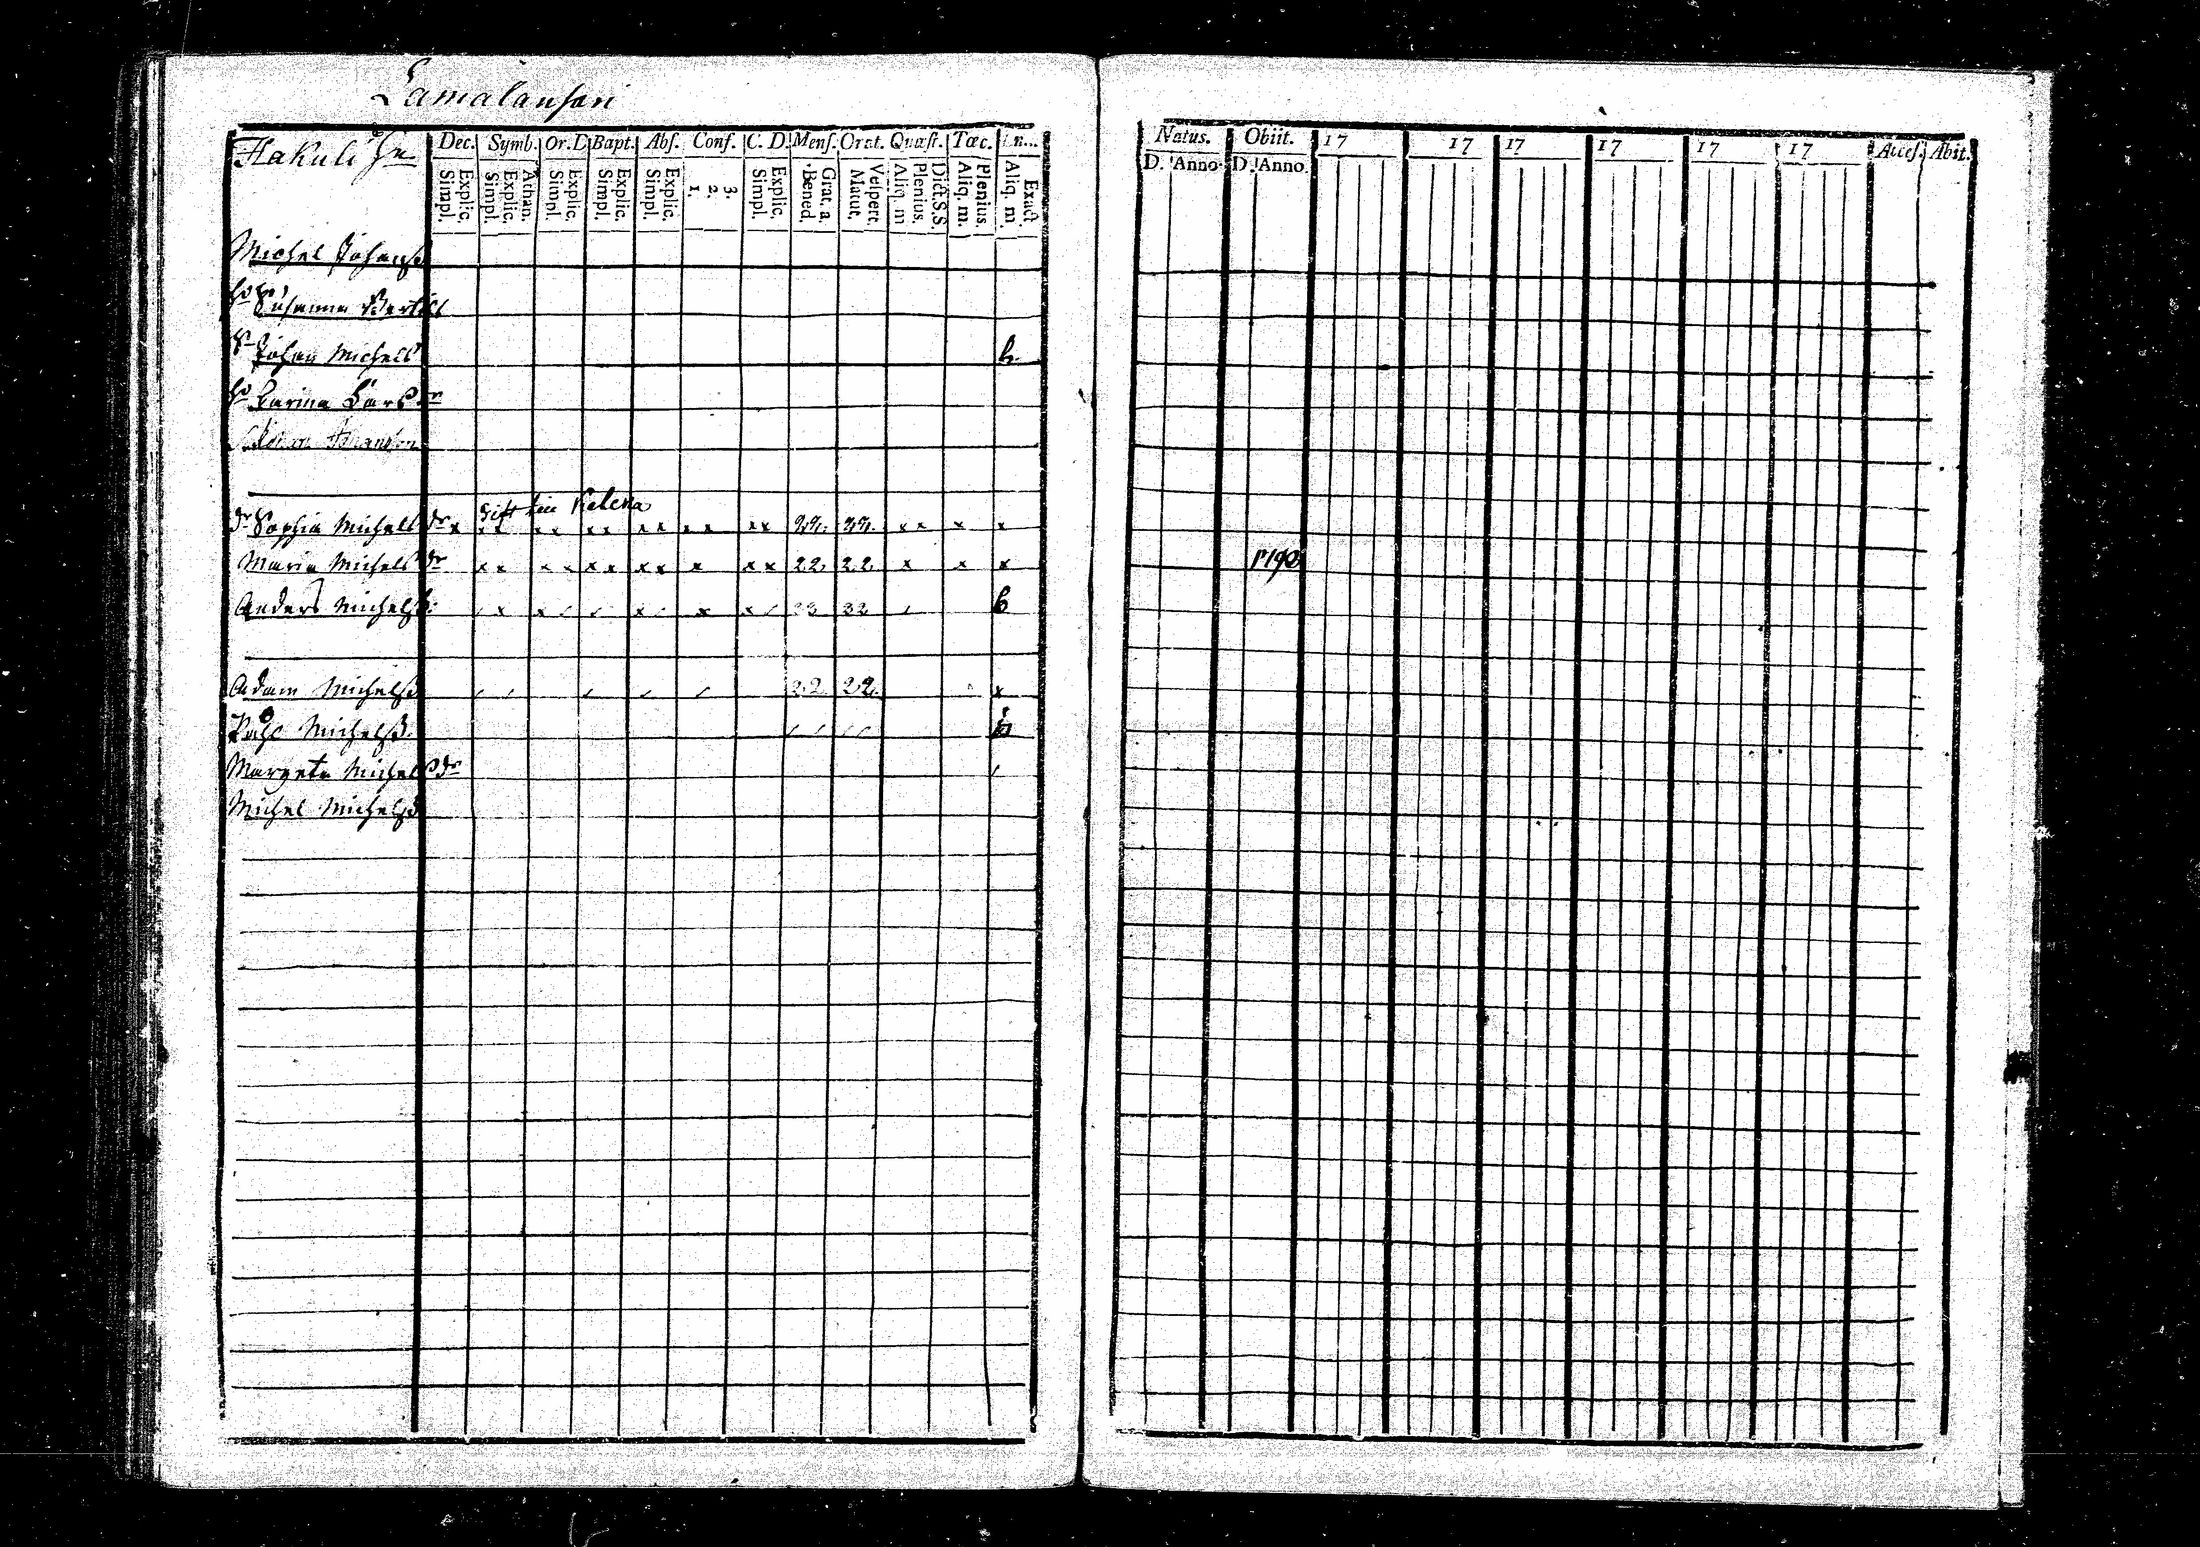 Lamalansari
Hakuli
Dec. Symb. Or.D Bapt. Abs. Conf. C. D. Mens. Orat. Quæst. Tœc.
Explic. Simpl. Athan. Explic. Simpl. Explic. Simpl. Explic. Simpl. Explic. Simpl. 3. 2. 1. Explic. Simpl. Grat. a. Bened. Vespert. Matut. Dict.S.S. Plenius. Aliq. m Plenius. Aliq. m. Exact Aliq. m.
Michel Johanss
hu Susanna Bertils
Sn Johan Michels b.
hu Karina Larsdr
Gift
dr Sophia Michelsdr x xx xx xx xx xx xx 22. 22. xx x x
Maria Michelsdr xx xx xx xx x xx 22. 22. x x x
Anders Michelss b
Adam Michelss 22 22. x
Påhl Michelss.
Margeta Michelsdr
Michel Michelss
Natus. Obiit. 17 17 17 17 17 17 Acces. Abit.
D. Anno D. Anno